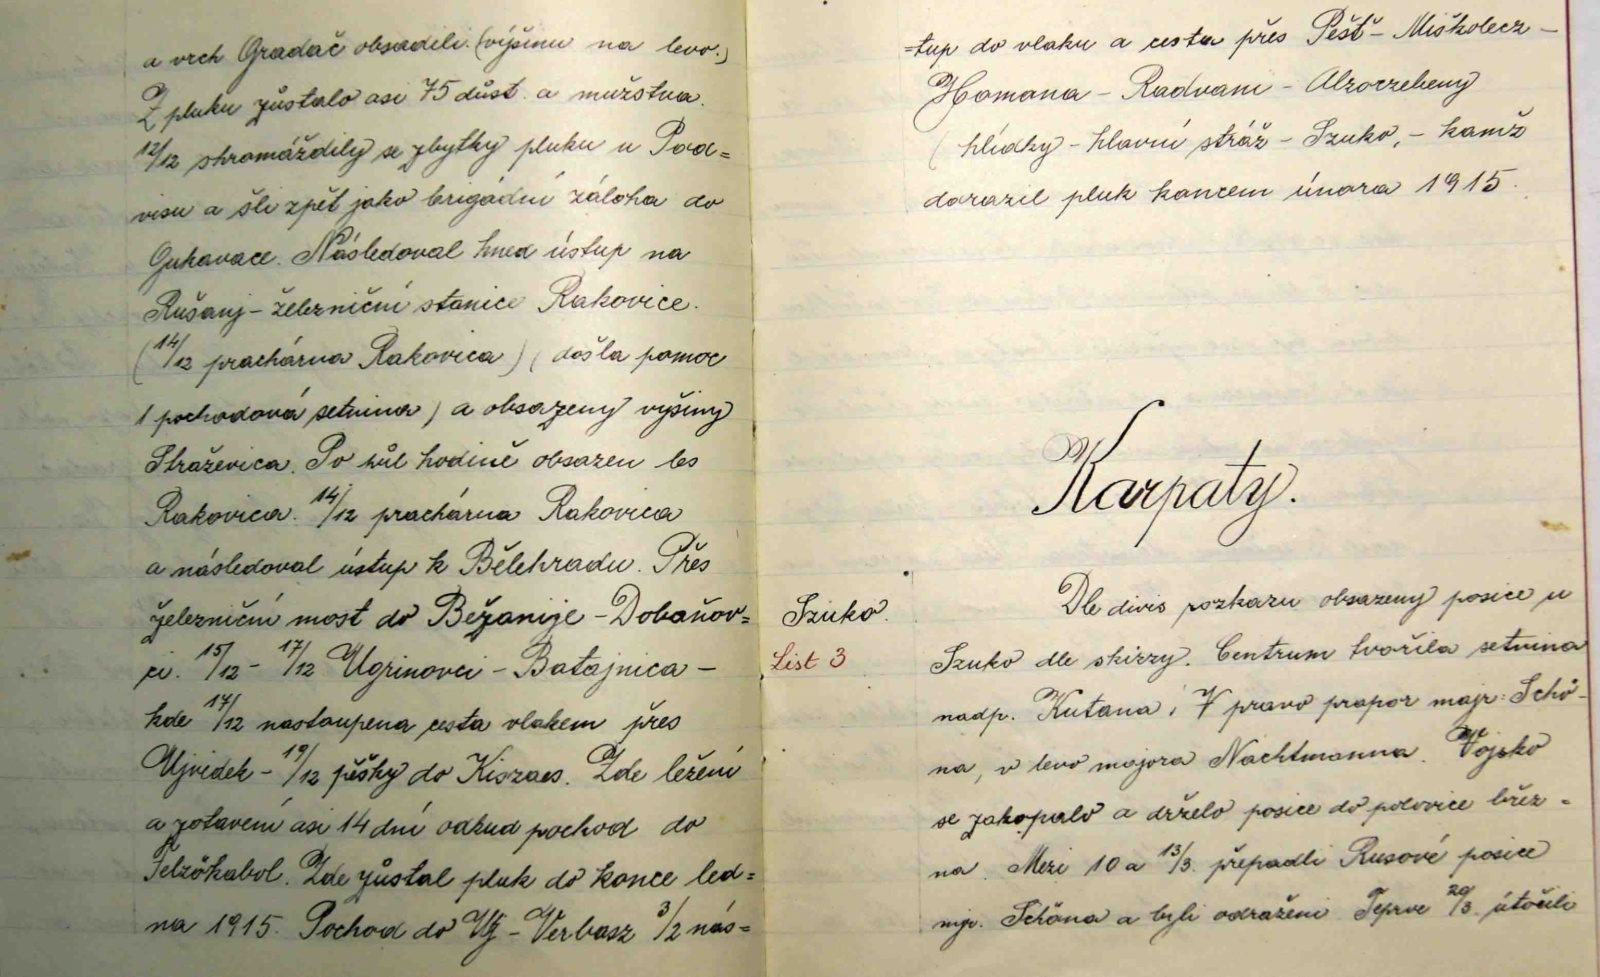 a vrch Gradač obsadili. (výšinu na levo.)
Z pluku zůstalo asi 75 důst. a mužstva.
12/12 shromáždily se zbytky pluku u Pod=
visu a šli zpět jako brigádní záloha do
Gukavace. Následoval hned ústup na
Rušanj - železniční stanice Rakovice.
(14/12 prachárna Rakovica) (došla pomoc
1 pochodová setnina) a obsazeny výšiny
Straževica. Po půl hodině obsazen les
Rakovica. 14/12 prachárna Rakovica
a následoval ústup k Bělehradu. Přes
železniční most do Bežanije - Dobaňov=
ci. 15/12 - 17/12 Ugrinovci - Batajnica -
kde 17/12 nastoupena cesta vlakem přes
Ujvidek - 19/12 pěšky do Kiszacs. Zde ležení
a zotavení asi 14 dní odkud pochod do
Felzökabol. Zde zůstal pluk do konce led=
na 1915. Pochod do Uj - Verbasz 3/2 nás=
=tup do vlaku a cesta přes Pešť - Miškolecz -
Homona - Radvani - Alzoczebeny
(hlídky - hlavní stráž - Szuko, - kamž
dorazil pluk koncem února 1915.
Karpaty.
Szuko.
List 3
Dle divis rozkazu obsazeny posice u
Szuko dle skizzy. Centrum tvořila setnina
nadp. Kutana; V pravo prapor majr: Schö-
na, v levo majora Nachtmanna. Vojsko
se zakopalo a drželo posice do polovice břez=
na. Mezi 10 a 13/3. přepadli Rusové posice
mjr. Schöna a byli odraženi. Teprve 20/3. útočili